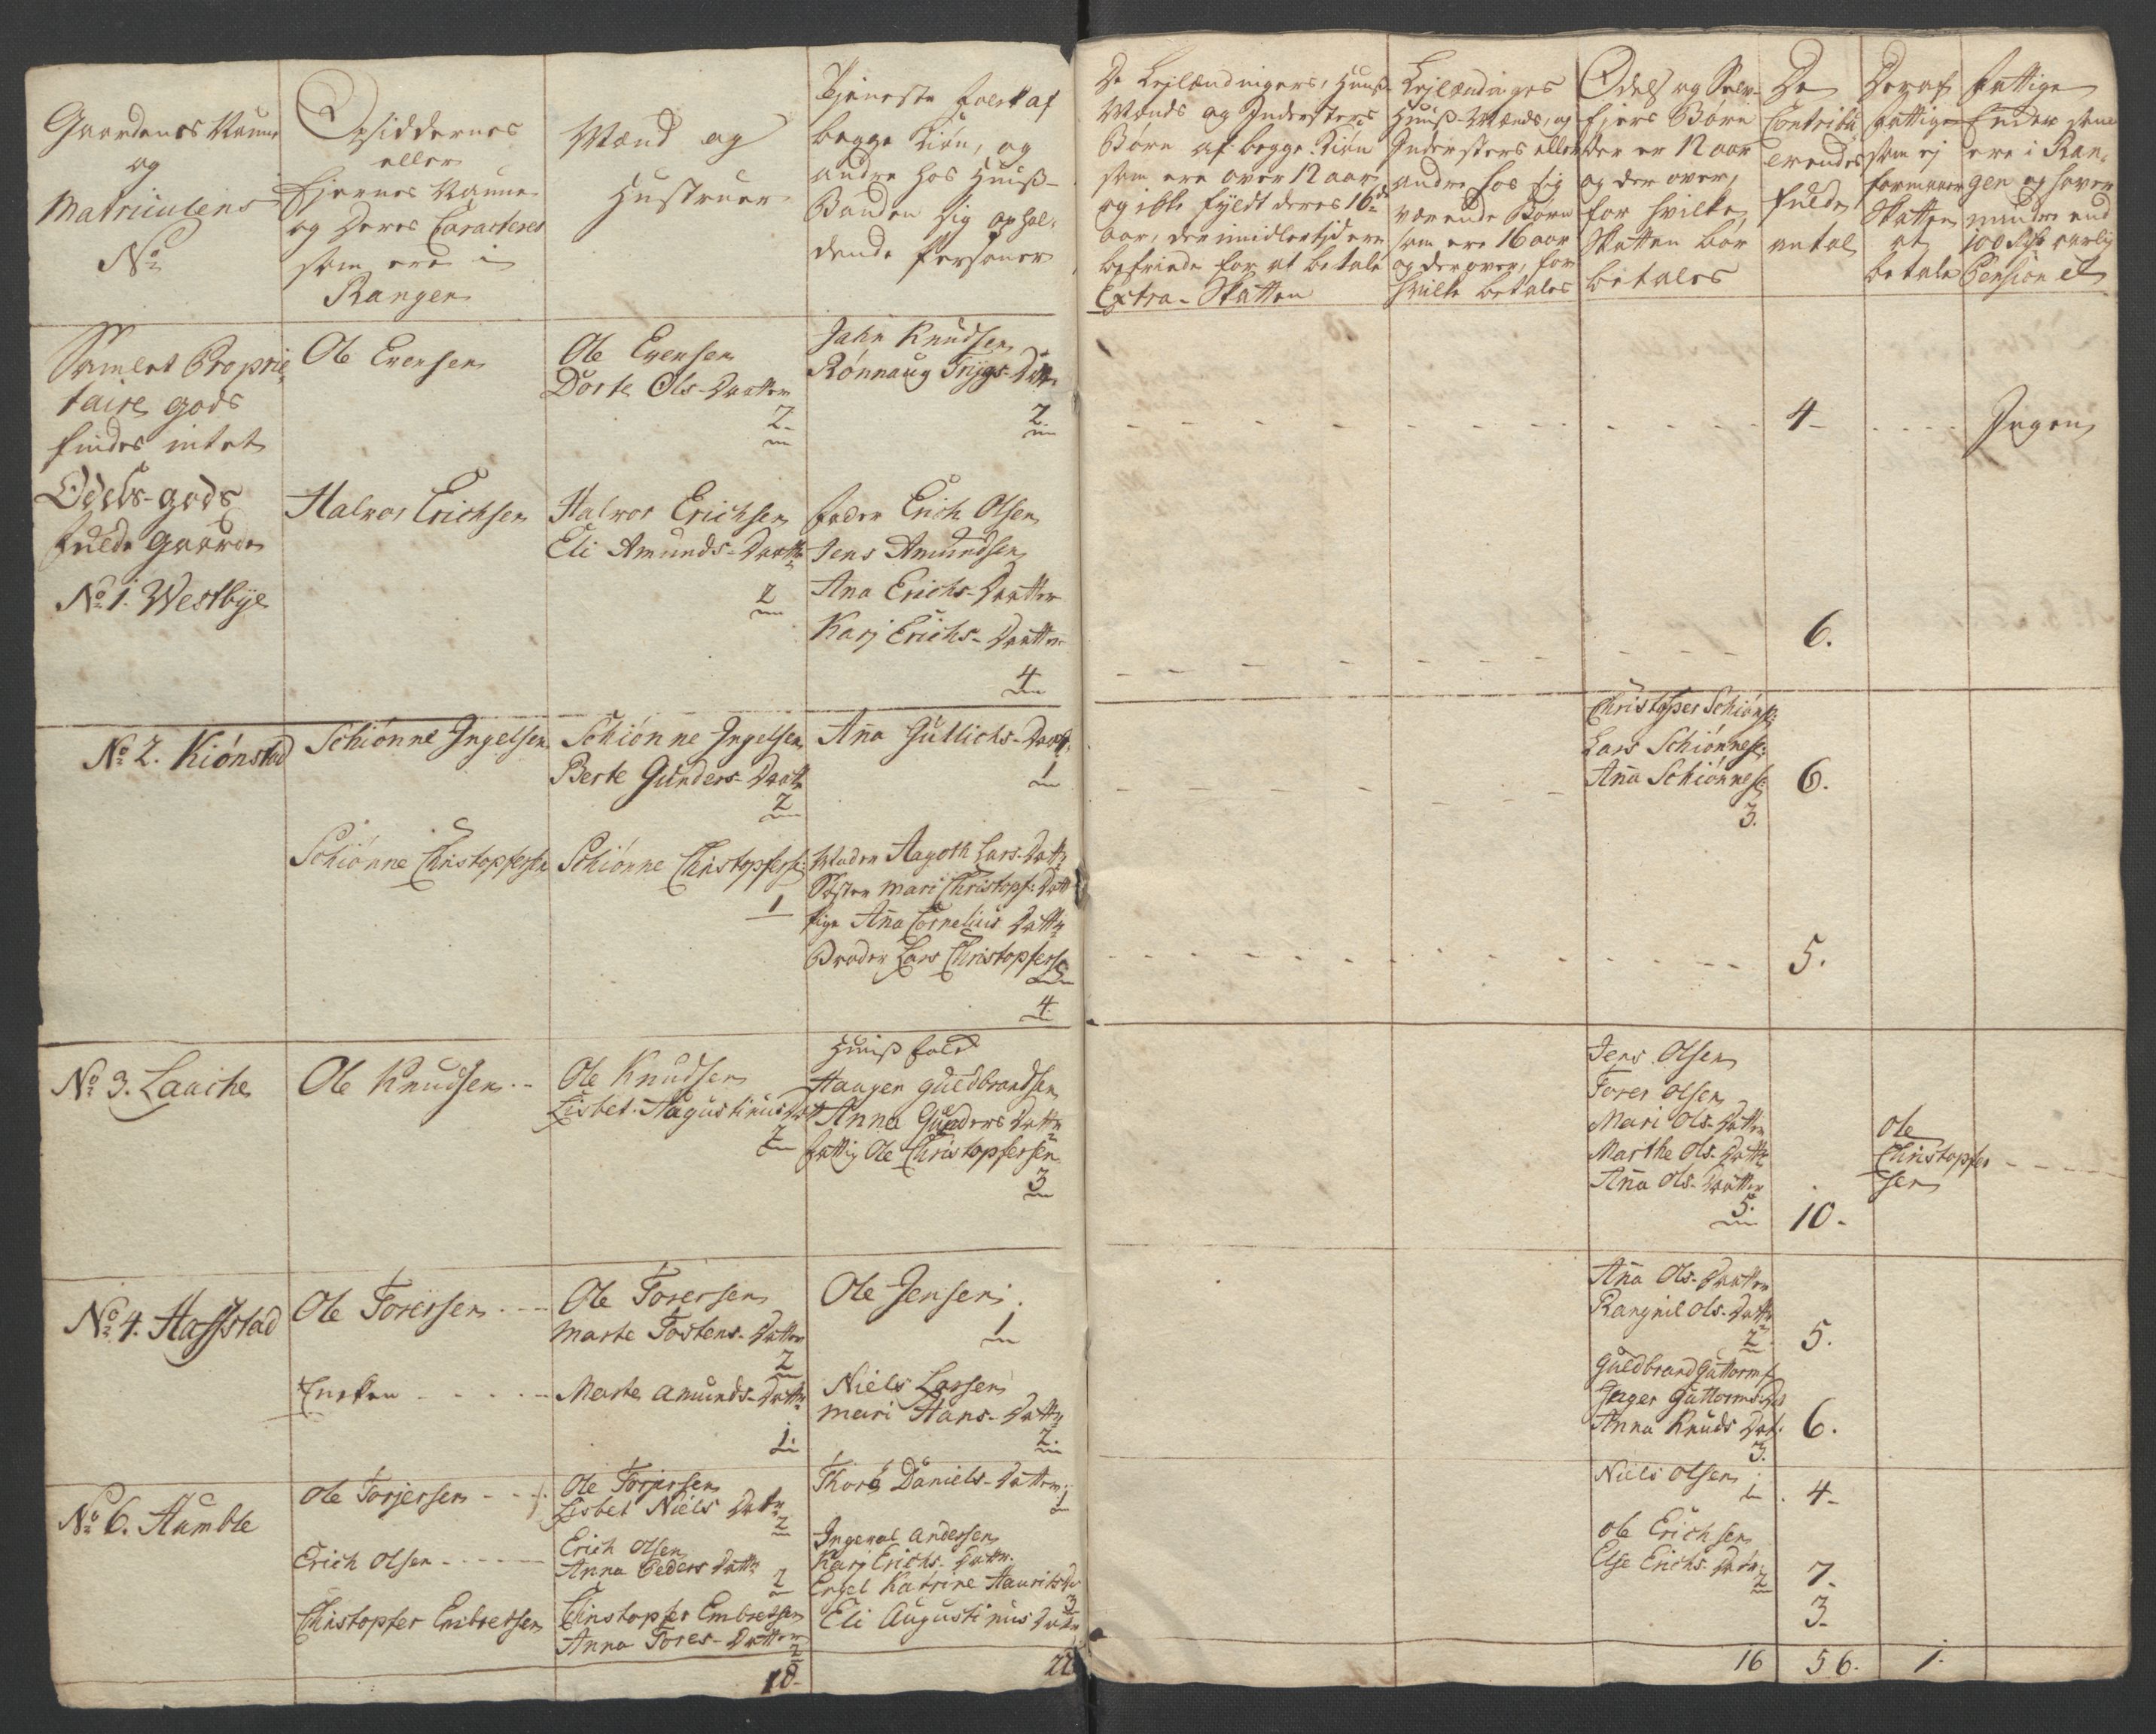 Gaardenes Naune
og
Matriculens
No
Opsiddernes
eller
Ejernes Naune
og Deres Caracterer
som ere i
Rangen
Mænd og
Hustruer
Tjeneste folk af
begge Kiøn, og
andre hos Huuß-
Bonden sig ophol-
dende Personer
De Lejlændingers, Huuß-
Mænds og Inderstes
Børn af begge Kiøn
som ere over 12 aar
og ikke fyldt deres 16de
aar, der imidlertid ere
befriede for at betale
Extra-Skatten
Lejlændinges
Huuß-Mænds, og
Inderstes eller
andre hos sig
værende Børn
som ere 16 aar
og derover, for
hvilke betales
Odels og Selv-
Ejers Børn
der er 12 aar
og der over,
for hvilke
Skatten bør
betales
De
Contribu-
erendes
fulde
antal
Deraf
fattige
som ej
formaaer
Skatten
at
betale
fattige
Enker som
ere i Ran-
gen og haver
mindre end
100 Rdr aarlig
Pension
Samlet Proprie-
taire gods
findes intet
Ole Evensen
Ole Evensen
Dorte Ols-Daatter
2
John Knudsen
Rønnaug Trygs-Datter
2
4
Ingen
Odels-gods
fulde Gaarde
No 1. Westbye
Halvor Erichsen
Halvor Erichsen
Eli Amunds-Daatter
2
fader Erich Olsen
Jens Amundsen
Ana Erichs-Daatter
Karj Erichs-Daatter
4
6.
No 2. Kiønstad
Schiønne Ingelsen
Schiønne Ingelsen
Berte Gunders-Daatr
2
Ana Gullichs-Daatr
1
Christopfer Schiønse:
Lars Schiønnese:
Ana Schiønnese:
3.
6.
Schiønne Christopfersen
Schiønne Christopferse:
1
Moder Aagoth Lars-Dattr
Søster Mari Christopf:Datt
Pige Ana Cornelius Dattr
Broder Lars Christopfersen
4
5.
No 3. Laache
Ole Knudsen
Ole Knudsen
Lisbet Augustinus Datt
2
Huuß fold
Haagen Guldbrandsen
Anna Gunders Dattr
fattig Ole Christopfersen
3
Jens Olsen
Torer Olsen
Mari Ols-Datter
Marthe Ols-Dattr
Ana Ols-Datter
5.
10.
Ole
Christopfer
sen
No 4. Haffstad
Ole Torersen
Ole Torersen
Marte Tostens-Datter
2
Ole Jensen
1
Ana Ols-Datter
Rangnil Ols-Dattr
2
5.
Enken
Marte Amunds-Dattr
1.
Niels Larsen
Mari Hans-Dattr
2.
Guldbrand Guttorms
Inger Guttorms Dat
Anna Knuds Dat:
3.
6.
No 6. Humble
Ole Torjersen
Ole Torjersen
Lisbet Niels Dattr
2
Thore Daniels-Datter
1
Niels Olsen
1
4
Erich Olsen
Erich Olsen
Anna Peders Dattr
2
Ingeval Andersen
Karj Erichs-Dattr
Engel Katrine Hauritz Dr
3
Ole Erichsen
Else Erichs-Dattr
2
7
Christopfer Embretsen
Christopfer Embretsen
Anna Tores-Datter
2
Eli Augustinus Dattr
3
18
22
16
56.
1.